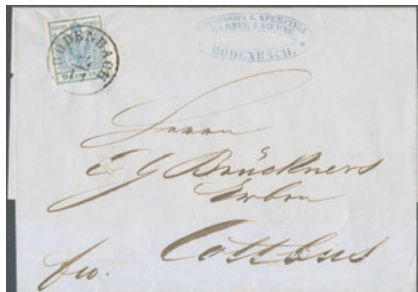 BODENBACH
& SPEDITION
BODENBACH.
Herrn
E G Brückners
Erben
Cottbus
fco.